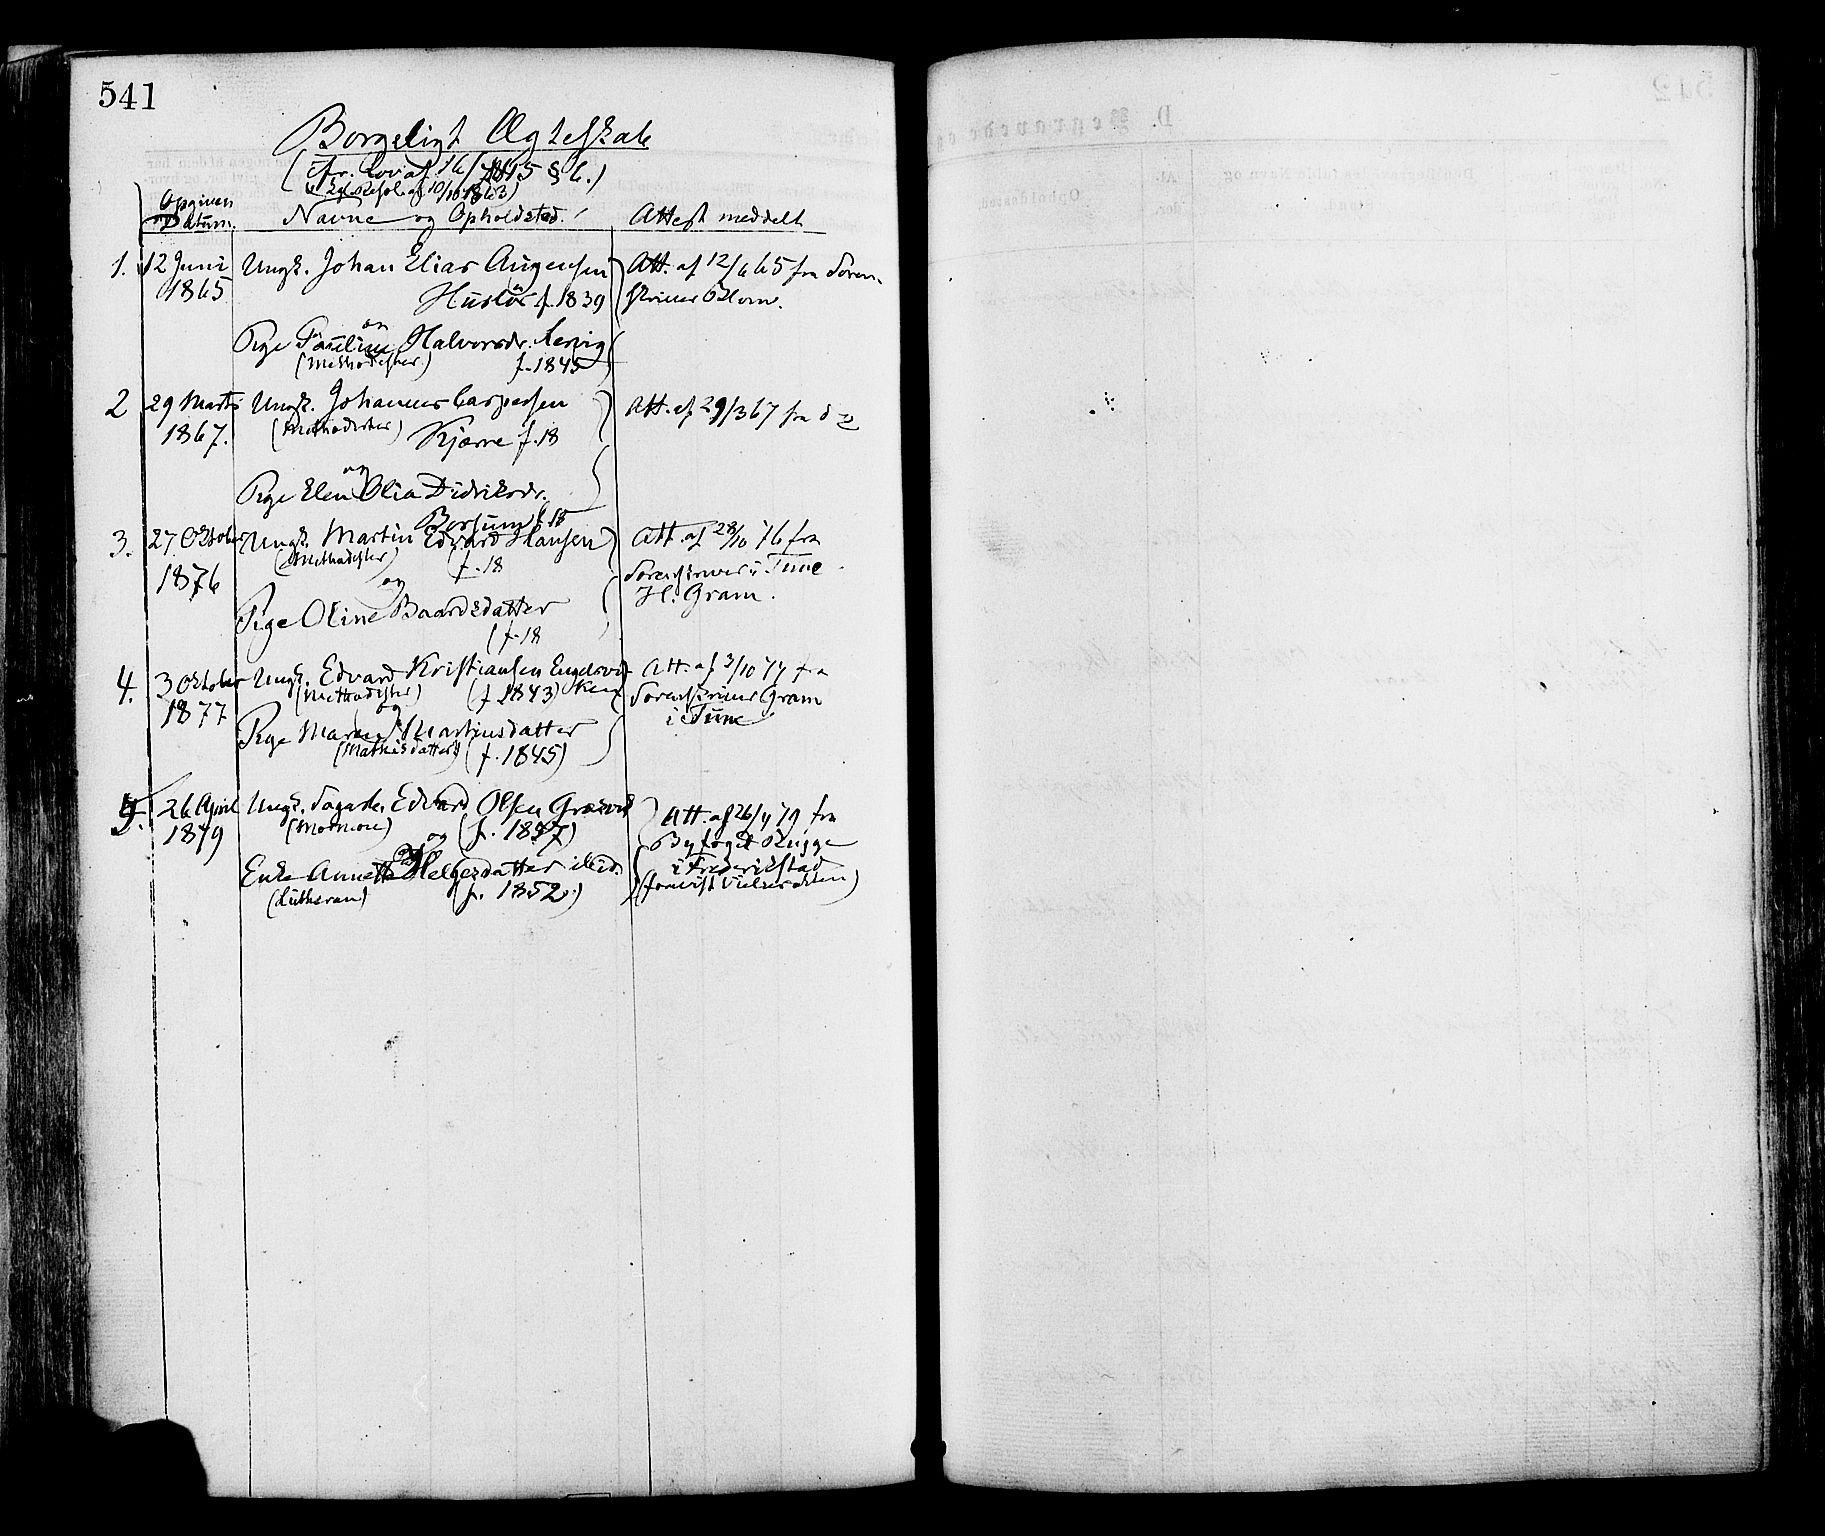 541
Borgeligt Ægteskab
(cfr. Lov af 16/7 1845 § 6.)
Kgl. Resol. af 10/10 1863)
Opgiven
Datum.
Navne og Opholdsted.
Attest meddelt
1. 12 Juni Ungk. Johan Elias Augensen Att. af 12/6 65 fra Soren-
1865 f. 1839 skriver Blom.
og
Pige Pauline Halvorsdr.
(Methodister) f. 1845
2 29 Marts Ungk. Johannes Caspersen Att. af 29/3 67 fra do
1867. (Methodister) Kjærre f. 18
og
Pige Elen Olia Didriksdr.
f. 18
3. 27 Oktober Ungk. Martin Edvard Hansen Att. af 28/10 76 fra
(Methodister) (f. 18
1876 Sorenskriver i Tune
og H. Gram.
Pige Oline Baardsdatter
(f. 18
4. 3 Oktober Ungk. Edvard Kristiansen Engelsvik Att. af 3/10 77 fra
(Methodister) (f. 1843) Sorenskriver Gram
1877 og i Tune
Pige Maren Martinsdatter
(Mathisdatter) (f. 1845)
5. 26 April Ungk. Edvard Olsen Græsvik Att. af 26/4 79 fra
1879 (Mormon) (f. 1857) Byfoged Rügge
og i Frederikstad
Enke Annette Helgesdatter ibid.
(Lutheran) (f. 1852.)
542